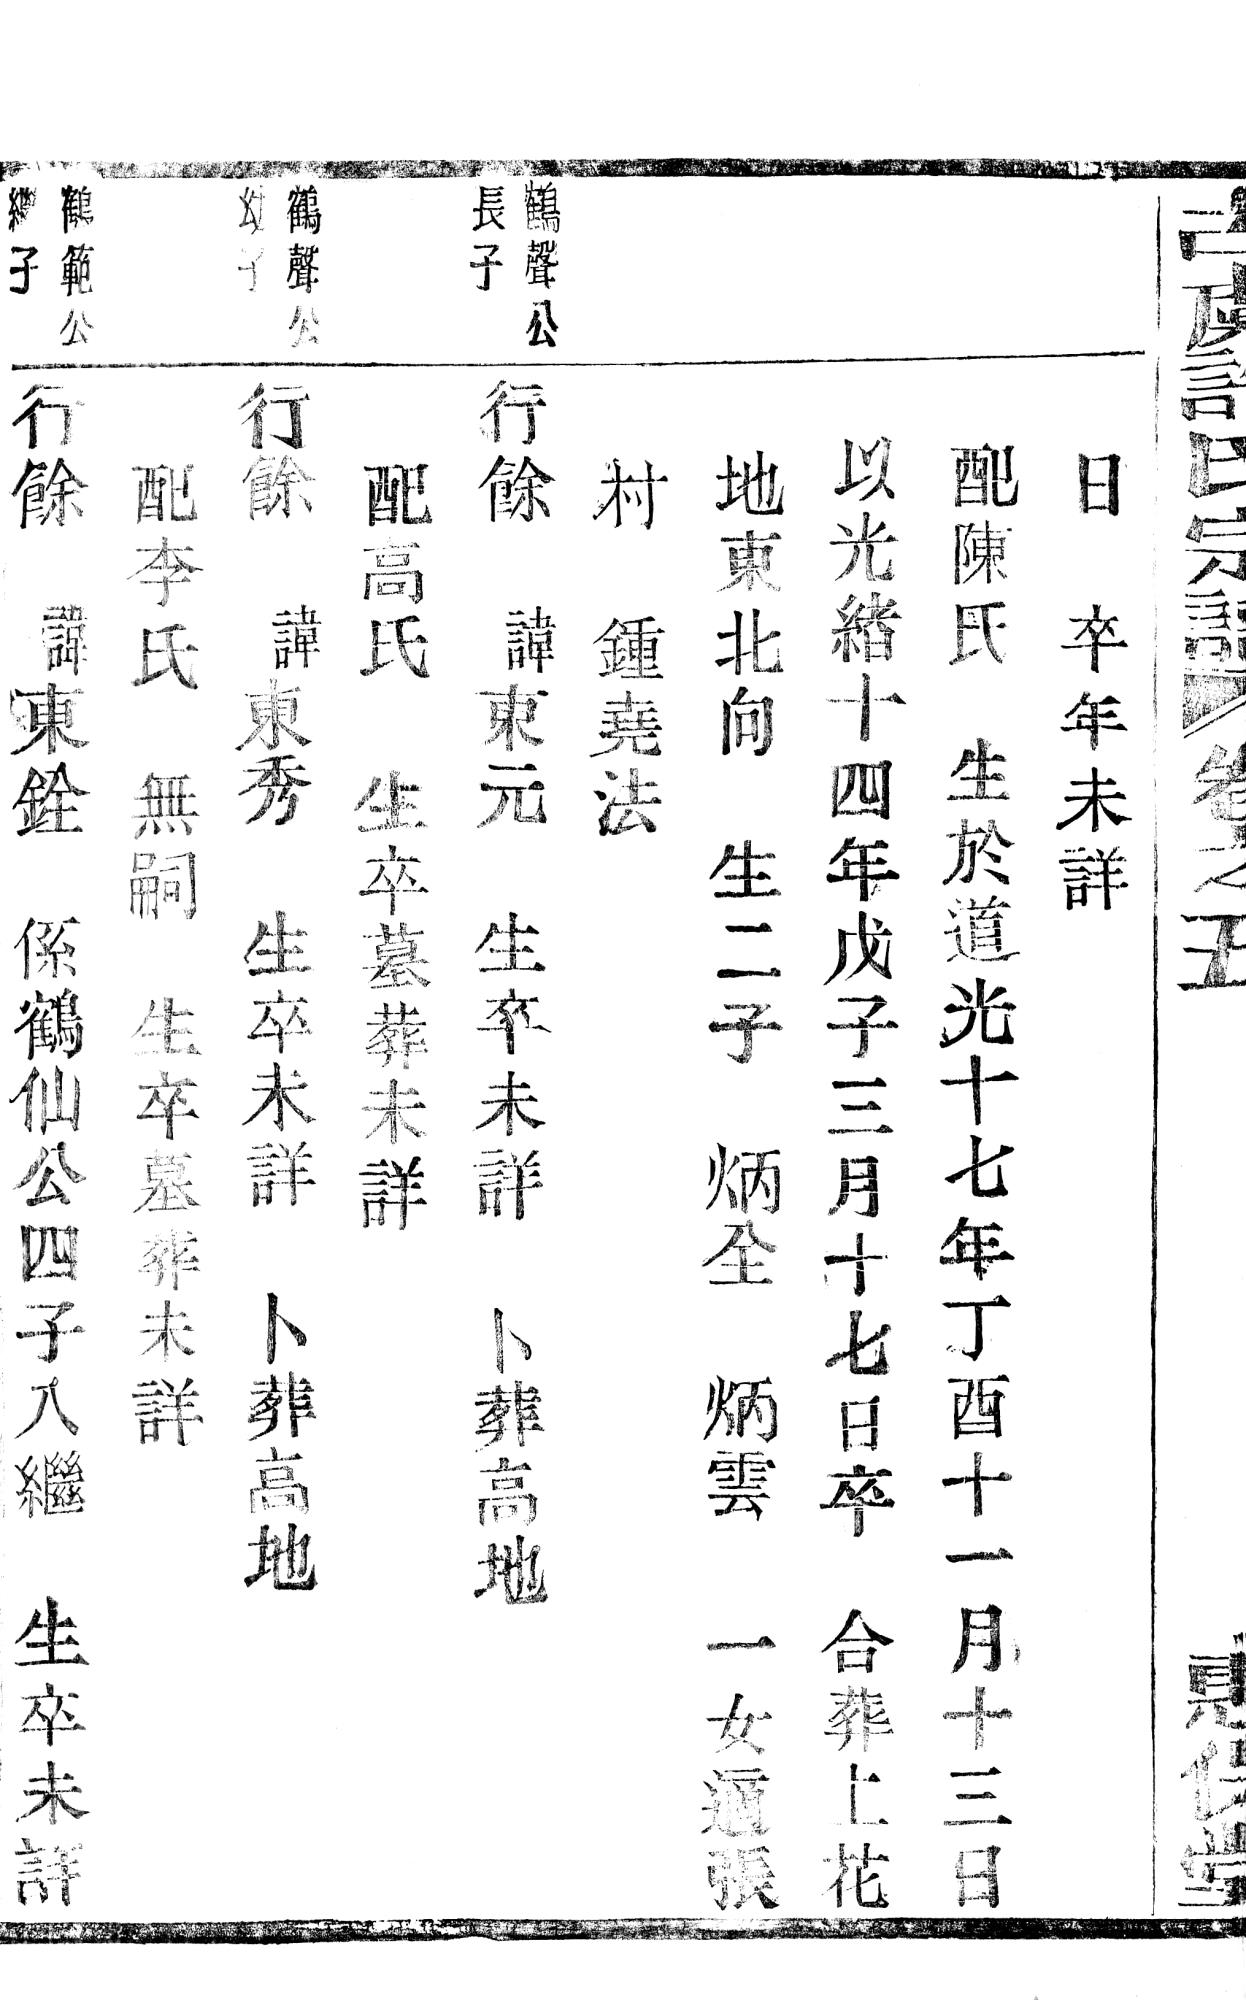 古虞許氏宗譜 卷之五 惠保堂
日 卒年未詳
配陳氏 生於道光十七年丁酉十一月十三日
以光緒十四年戊子三月十七日卒 合葬上花
地東北向 生二子 炳全 炳雲 一女適張
村 鍾堯法
鶴聲公
長子
行餘 諱東元 生卒未詳 卜葬高地
配高氏 生卒墓葬未詳
鶴聲公
幼子
行餘 諱東秀 生卒未詳 卜葬高地
配李氏 無嗣 生卒墓葬未詳
鶴範公
繼子
行餘 諱東銓 係鶴仙公四子入繼 生卒未詳